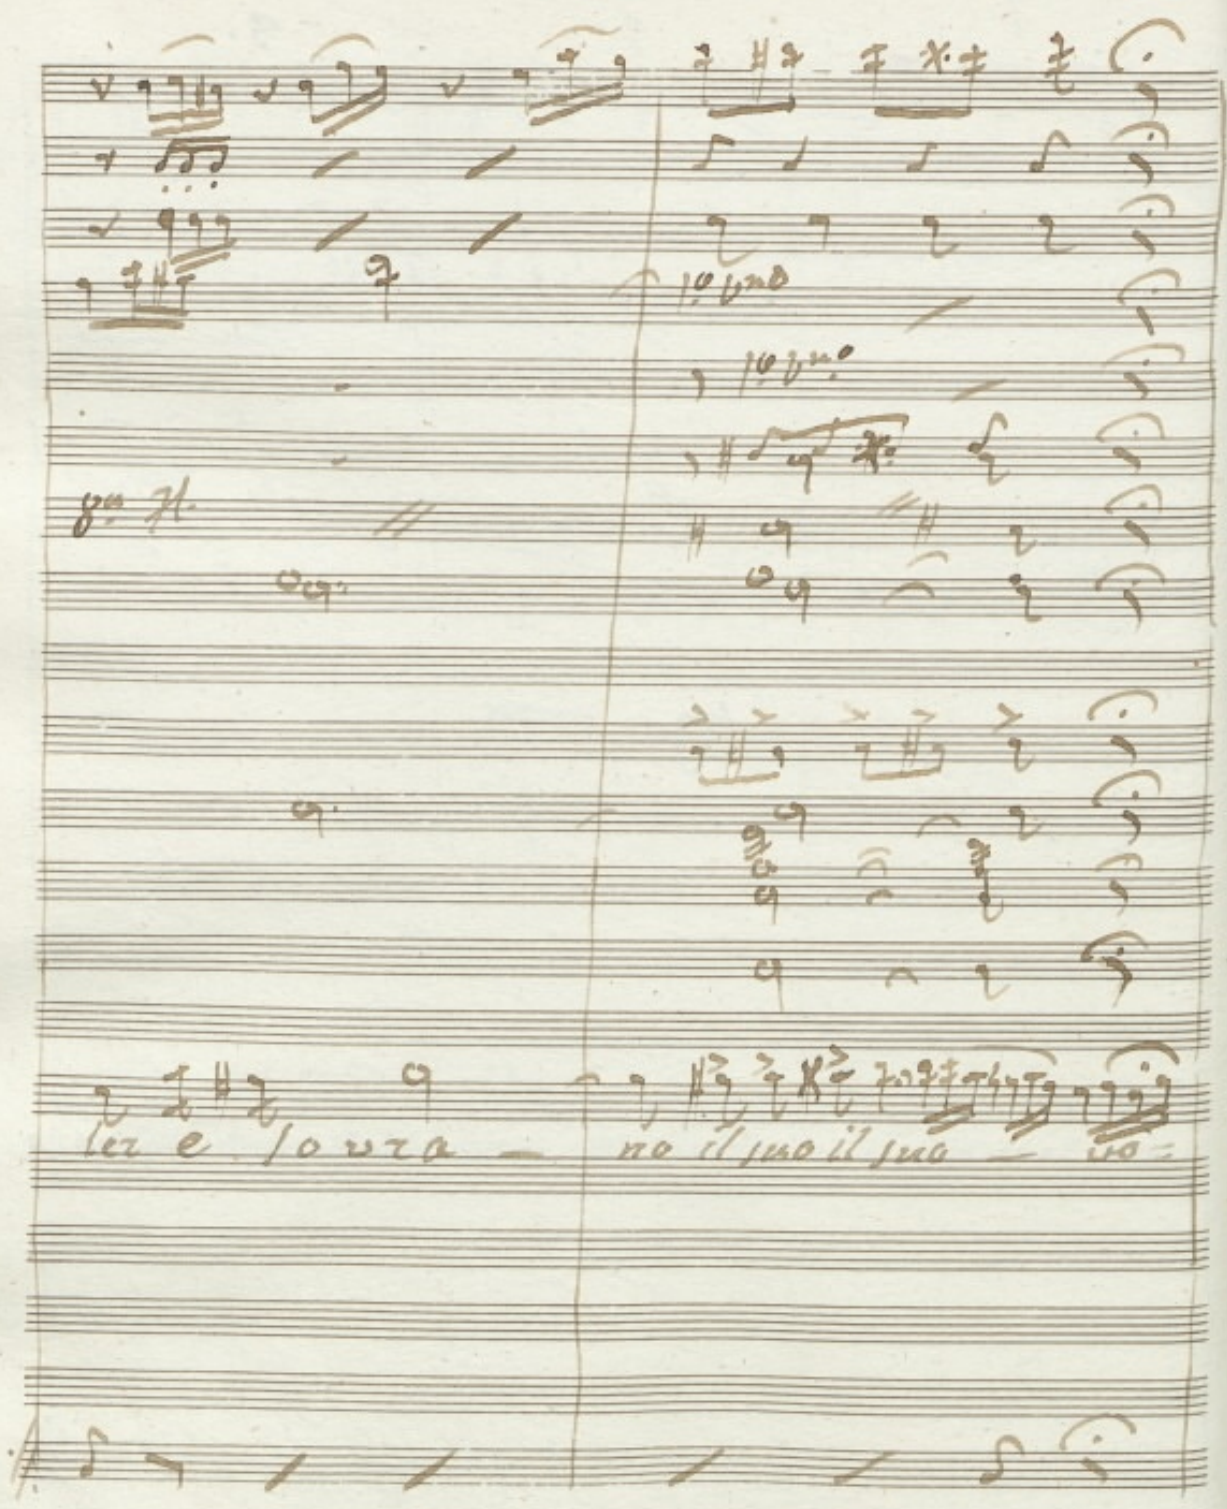 1º Vno
1º Vno
8va
ler e sovra - no il suo il suo - vo-